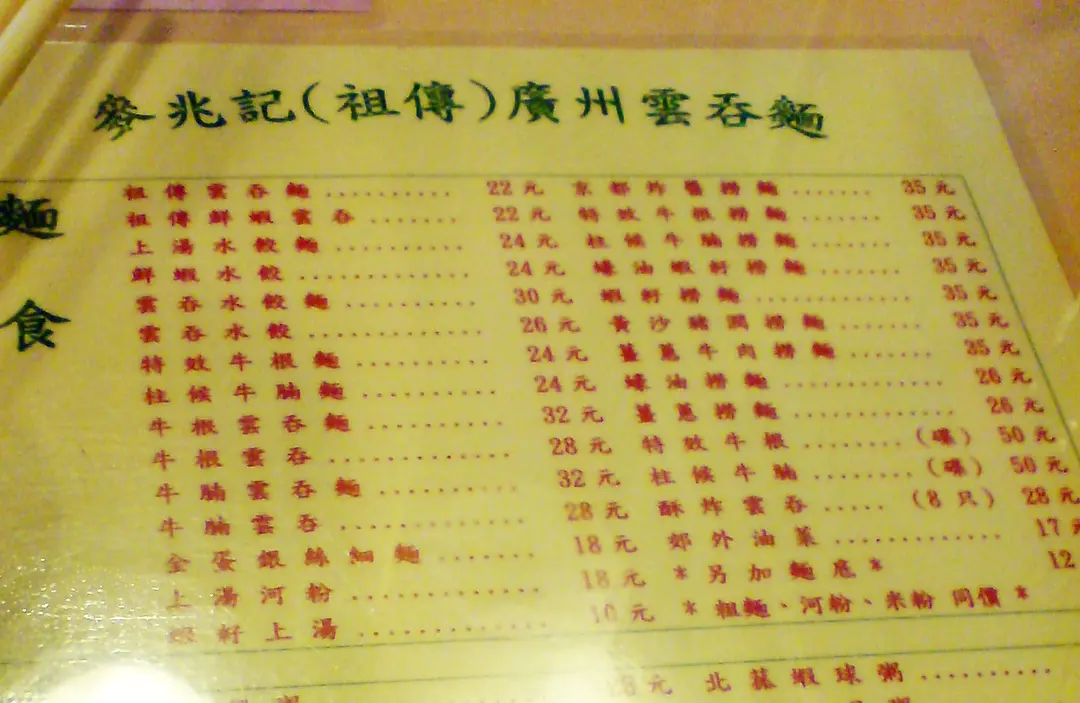 麥兆記(祖傳)廣州雲吞麵
麵食
祖傳雲吞麵.......... 22元
祖傳鮮蝦雲吞....... 22元
上湯水餃麵.......... 24元
鮮蝦水餃............ 24元
雲吞水餃麵......... 30元
雲吞水餃............ 26元
特效牛根麵.......... 24元
柱侯牛腩麵.......... 24元
牛根雲吞麵.......... 32元
牛根雲吞............ 28元
牛腩雲吞麵.......... 32元
牛腩雲吞............ 28元
金蛋銀絲細麵....... 18元
上湯河粉............ 18元
蝦籽上湯............ 10元
京都炸醬撈麵....... 35元
特效牛根撈麵....... 35元
柱侯牛腩撈麵....... 35元
蠔油蝦籽撈麵....... 35元
蝦籽撈麵............ 35元
黃沙豬潤撈麵....... 35元
薑蔥牛肉撈麵....... 35元
蠔油撈麵............ 26元
薑蔥撈麵............ 26元
特效牛根........(碟) 50元
柱侯牛腩........(碟) 50元
酥炸雲吞.....(8只) 28元
郊外油菜............ 17元
*另加麵底* 12
*粗麵、河粉、米粉 同價*
元 北菰蝦球粥..........
粥